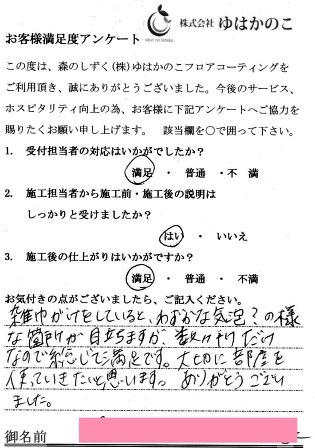 株式会社 ゆはかのこ
お客様満足度アンケート
この度は、森のしずく(株)ゆはかのこフロアコーティングを
ご利用頂き、誠にありがとうございました。今後のサービス、
ホスピタリティ向上の為、お客様に下記アンケートへご協力を
賜りたくお願い申し上げます。 該当欄を○で囲って下さい。
1. 受付担当者の対応はいかがでしたか?
満足 ・ 普通 ・不 満
2. 施工担当者から施工前・施工後の説明は
しっかりと受けましたか?
はい ・ いいえ
3. 施工後の仕上がりはいかがですか?
満足 ・ 普通 ・ 不満
お気付きの点がございましたら、ご記入ください。
雑巾がけをしていると、わずかな気泡?の様
な箇所が目立ちますが、数ヶ所だけ
なので総じて満足です。大切に部屋を
使っていきたいと思います。ありがとうござい
ました。
御名前